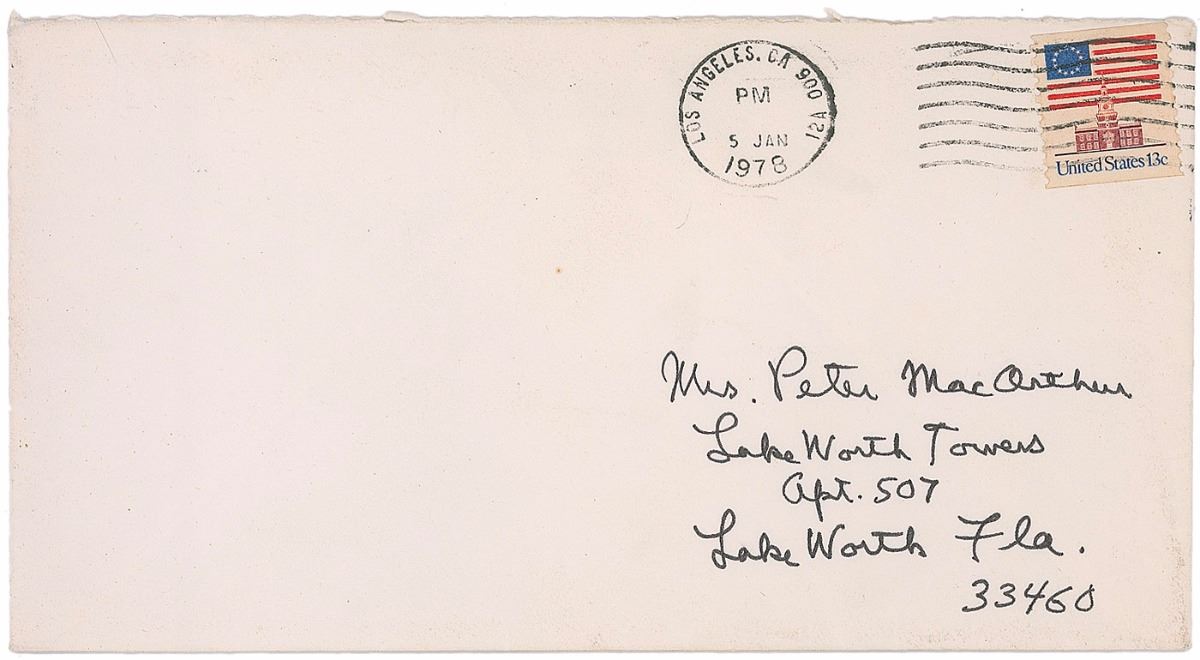 LOS ANGELES. CA 900 A21
PM
5 JAN
1978
United States 13c
Mrs. Peter MacArthur
Lake Worth Towers
Apt. 507
Lake Worth Fla.
33460